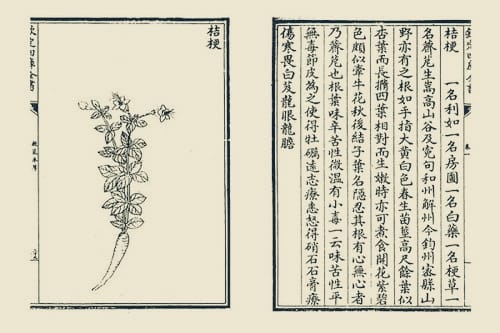 桔梗 一名利如一名房圖一名白藥一名梗草一
名薺苨生嵩高山谷及寃句和州解州今鈞州宻縣山
野亦有之根如手指大黄白色春生苗莖高尺餘葉似
杏葉而長撱四葉相對而生嫩時亦可煮食開花紫碧
色頗似牽牛花秋後結子葉名隠忍其根有心無心者
乃薺苨也根葉味辛苦性微温有小毒一云味苦性平
無毒節皮為之使得牡礪逺志療恚怒得硝石石膏療
傷寒畏白芨龍眼龍膽
桔梗
欽定四庫全書
救荒本草